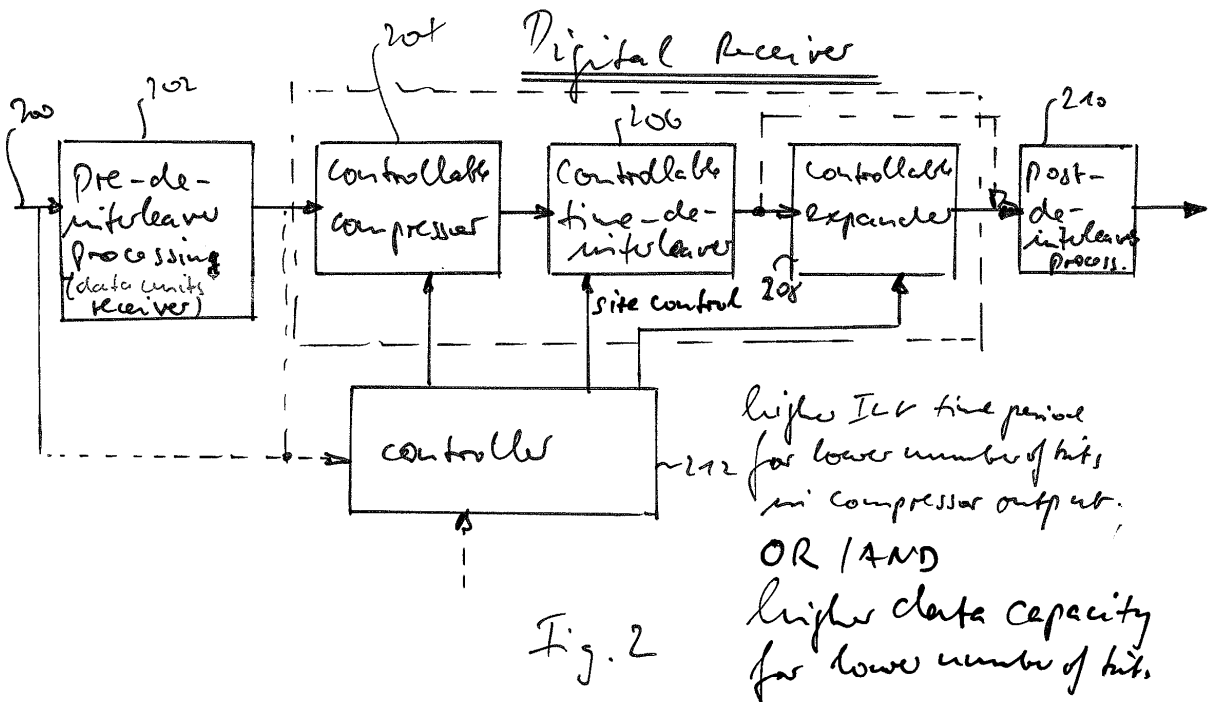 Digital Receiver
200
202
204
206
210
pre-de-
interleaver
processing
(data units
receiver)
controllable
compressor
controllable
time-de-
interleaver
controllable
expander
post-
de-
interleaver
process.
208
site control
controller
212
higher ILV time period
for lower number of bits
in compressor output.
OR / AND
higher data capacity
for lower number of bits
Fig. 2